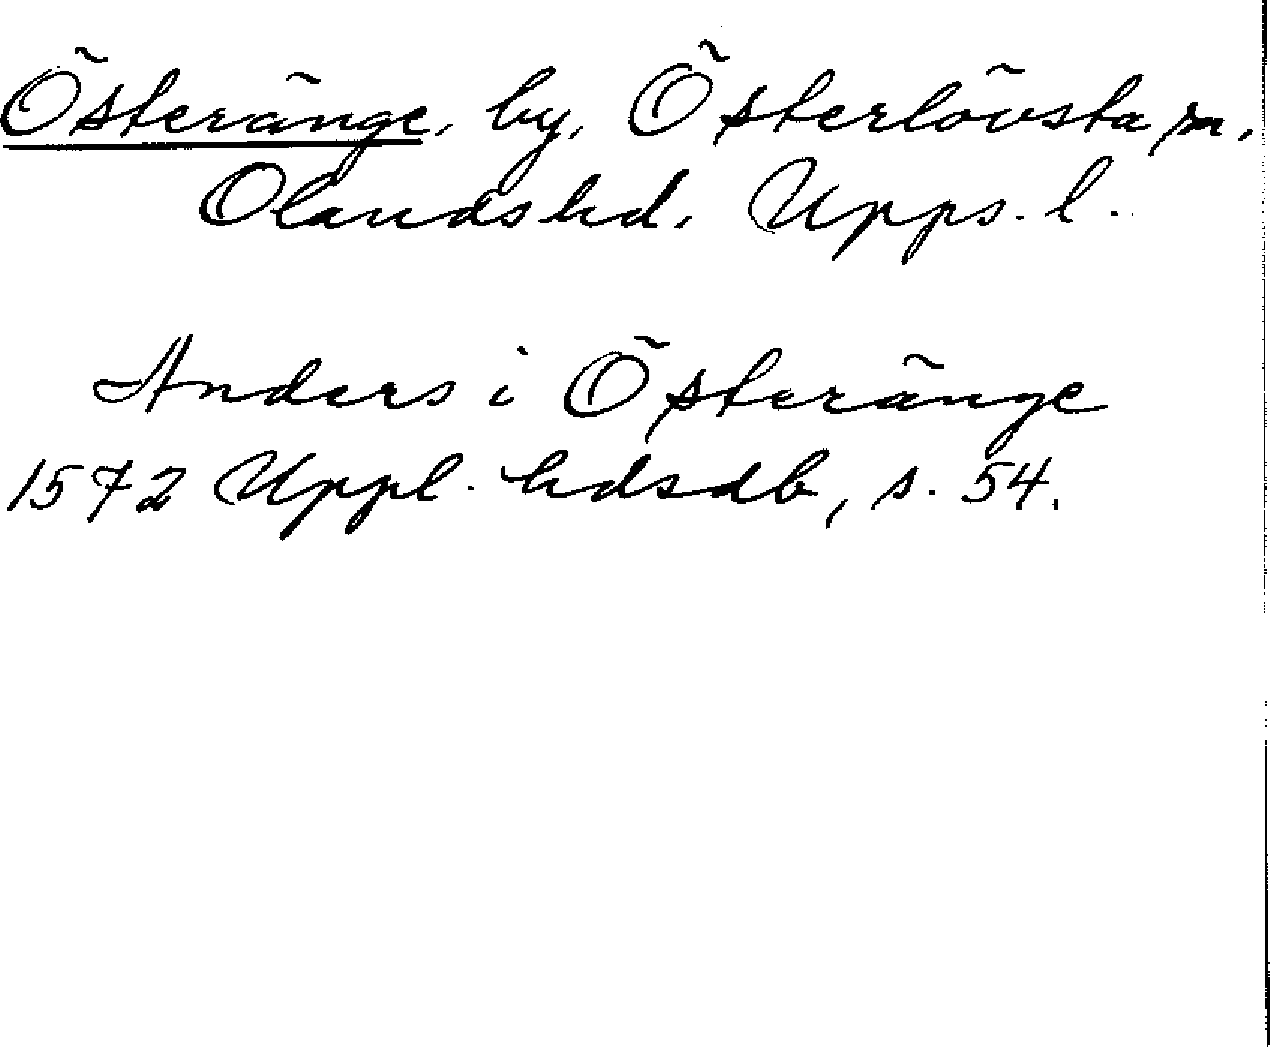 Österänge, by, Österlövsta sn,
Olands hd. Upps. l.
Anders i Österänge
1572 Uppl. hdsdb, s. 54.